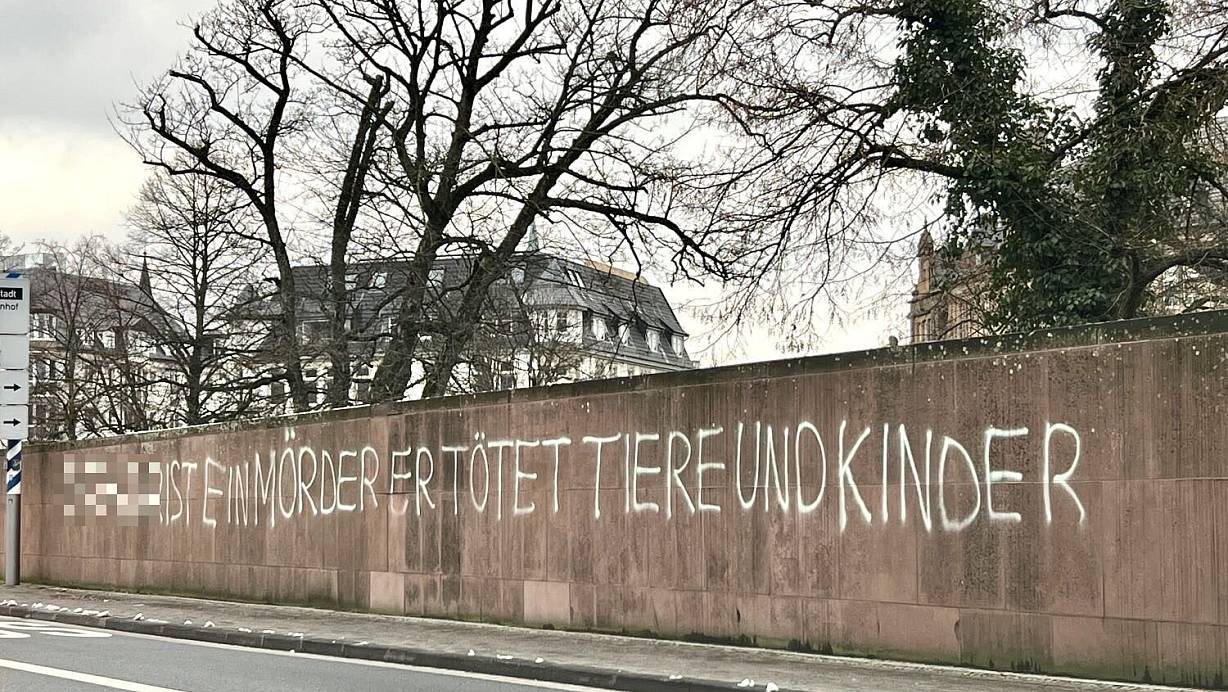 IST EIN MÖRDER ER TÖTET TIERE UND KINDER